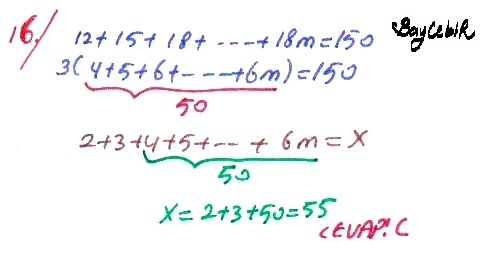 16./ 12+15+18+----+18m=150 BaycebiR
3(4+5+6+----+6m)=150
50
2+3+4+5+-- + 6m = X
50
X = 2+3+50=55
CEVAP: C